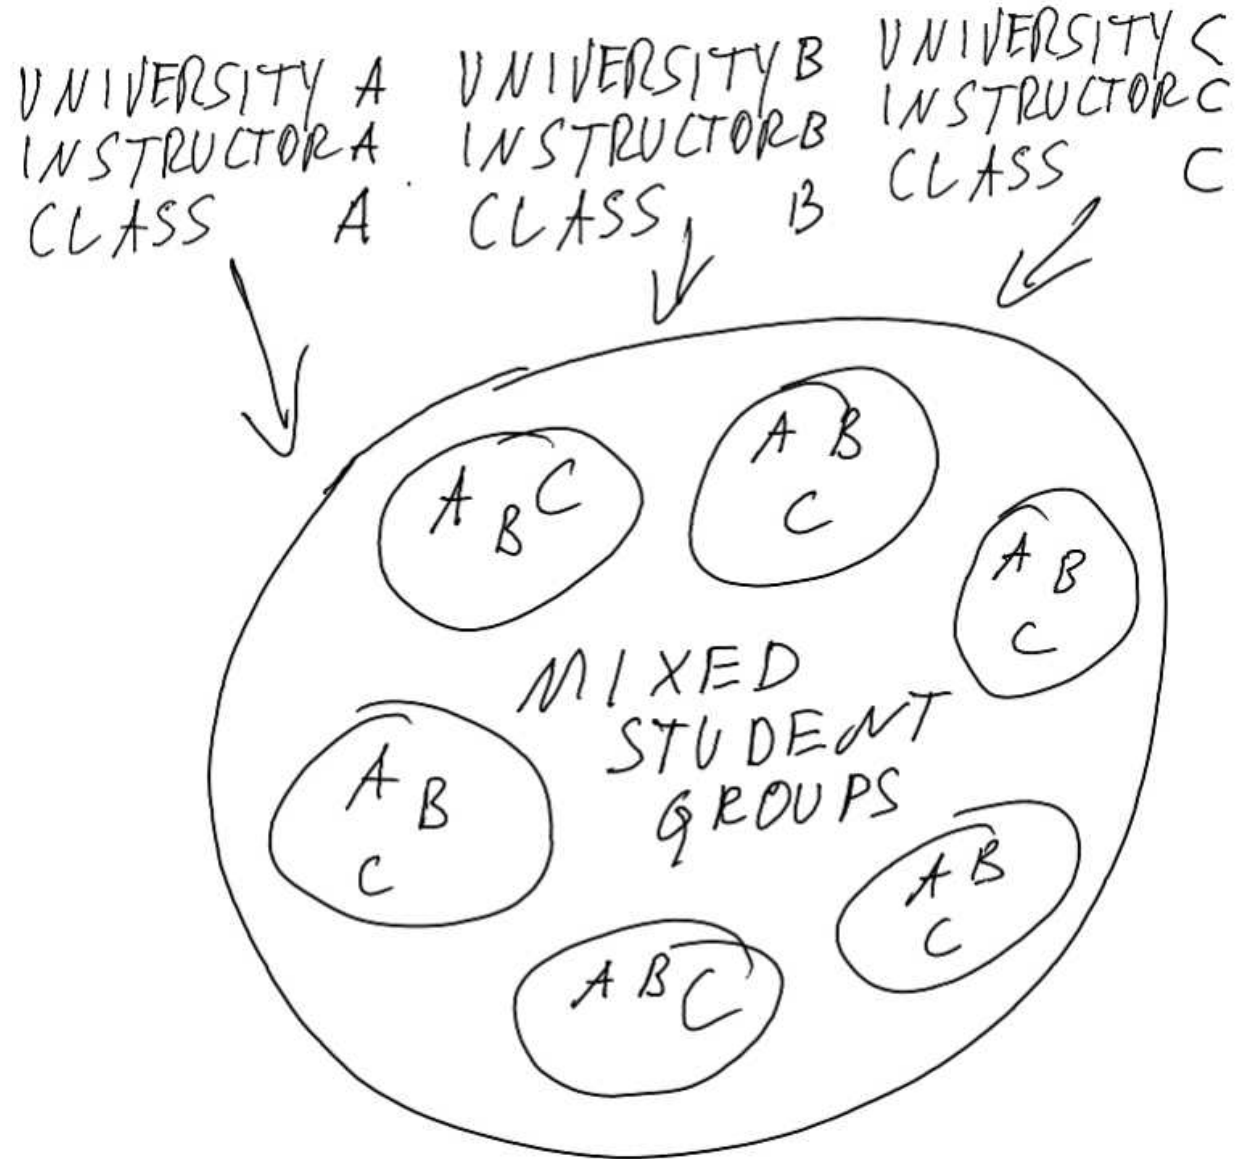 UNIVERSITY A
INSTRUCTOR A
CLASS A
UNIVERSITY B
INSTRUCTOR B
CLASS B
UNIVERSITY C
INSTRUCTOR C
CLASS C
A B C
A B
C
A B
C
MIXED
STUDENT
GROUPS
A B
C
A B
C
A B C